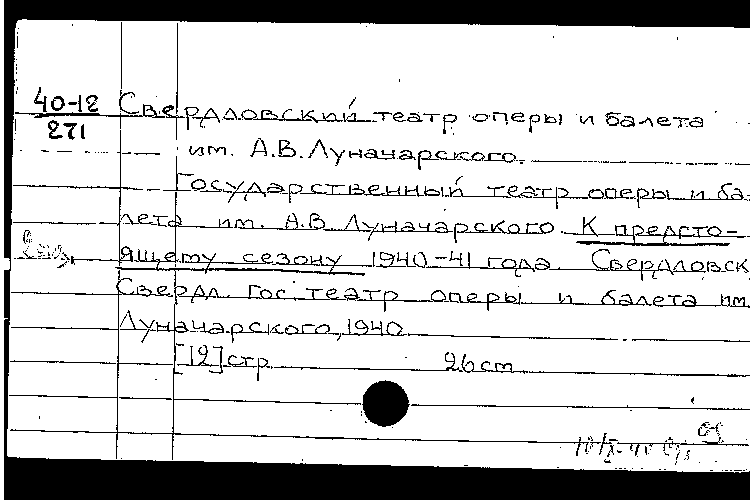 40-12
271
Свердловский театр оперы и балета
им. А.В.Луначарского.
Государственный театр оперы и ба-
лета им. А.В Луначарского. К предсто-
ящему сезону 1940-41 года. Свердловск
Свердл. Гос театр оперы и балета им.
Луначарского, 1940
[12] стр 26 cm